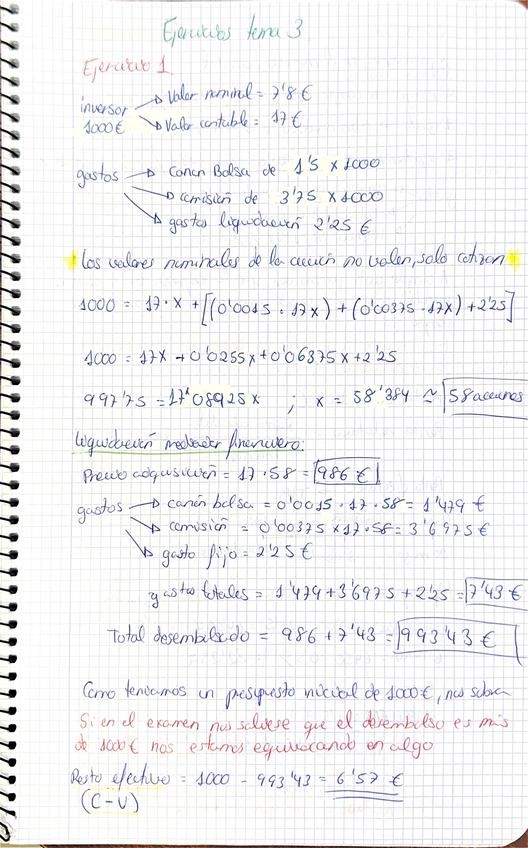 Ejercicios tema 3
Ejercicio 1
inversor → Valor nominal = 7'8 €
1000 € → Valor contable = 17 €
gastos → canon Bolsa de 1'5 x 1000
→ comisión de 3'75 x 1000
→ gastos liquidación 2'25 €
* Los valores nominales de la acción no valen, solo cotizan *
1000 = 17·x + [(0'0015 · 17x) + (0'00375 · 17x) + 2'25]
1000 = 17x + 0'0255x + 0'06375x + 2'25
997'75 = 17'08925x ; x = 58'384 ≈ 58 acciones
Liquidación mediador financiero:
Precio adquisición = 17·58 = 986 €
gastos → canón bolsa = 0'0015 · 17·58 = 1'479 €
→ comisión = 0'00375 x 17·58 = 3'6975 €
→ gasto fijo = 2'25 €
gastos totales = 1'479 + 3'6975 + 2'25 = 7'43 €
Total desembolsado = 986 + 7'43 = 993'43 €
Como teníamos un presupuesto inicial de 1000 €, nos sobra
Si en el examen nos saliese que el desembolso es más
de 1000 € nos estamos equivocando en algo
Resto efectivo = 1000 - 993'43 = 6'57 €
(C-V)